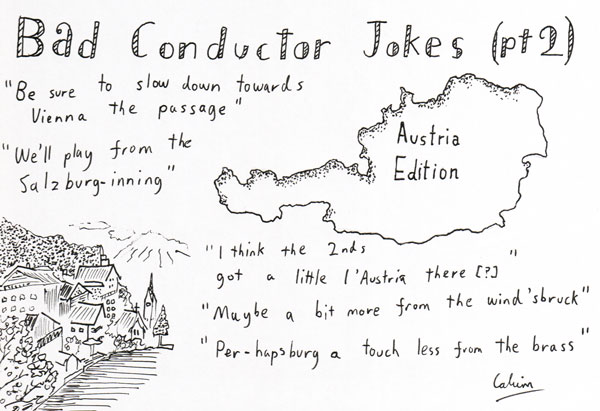 Bad Conductor Jokes (pt2)
"Be sure to slow down towards
Vienna the passage"
"We'll play from the
Salzburg-inning"
Austria
Edition
"I think the 2nds
got a little l'Austria there [?]"
"Maybe a bit more from the wind'sbruck"
"Per-hapsburg a touch less from the brass"